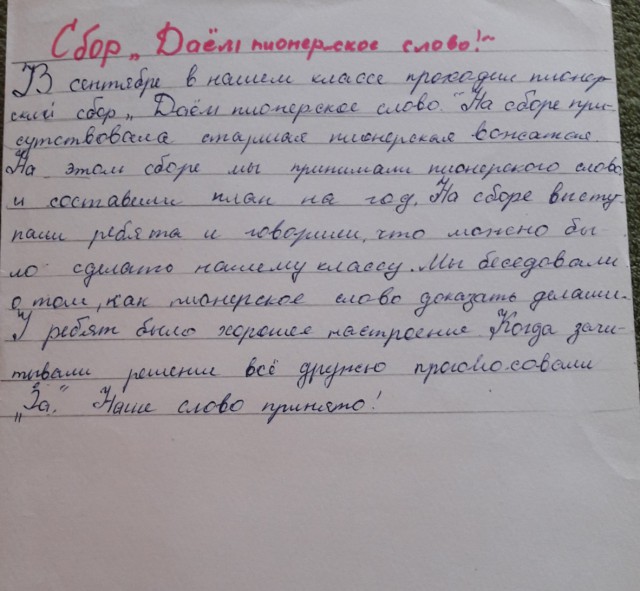 Сбор „Даём пионерское слово!"
В сентябре в нашем классе проходил пионер-
ский сбор „Даём пионерское слово." На сборе при-
сутствовала старшая пионерская вожатая.
На этом сборе мы принимали пионерского слово
и составили план на год. На сборе высту-
пали ребята и говорили, что можно бы-
ло сделать нашему классу. Мы беседовали
о том, как пионерское слово доказать делами.
У ребят было хорошее настроение. Когда зачи-
тывали решение всё дружно проголосовали
„За." Наше слово принято!